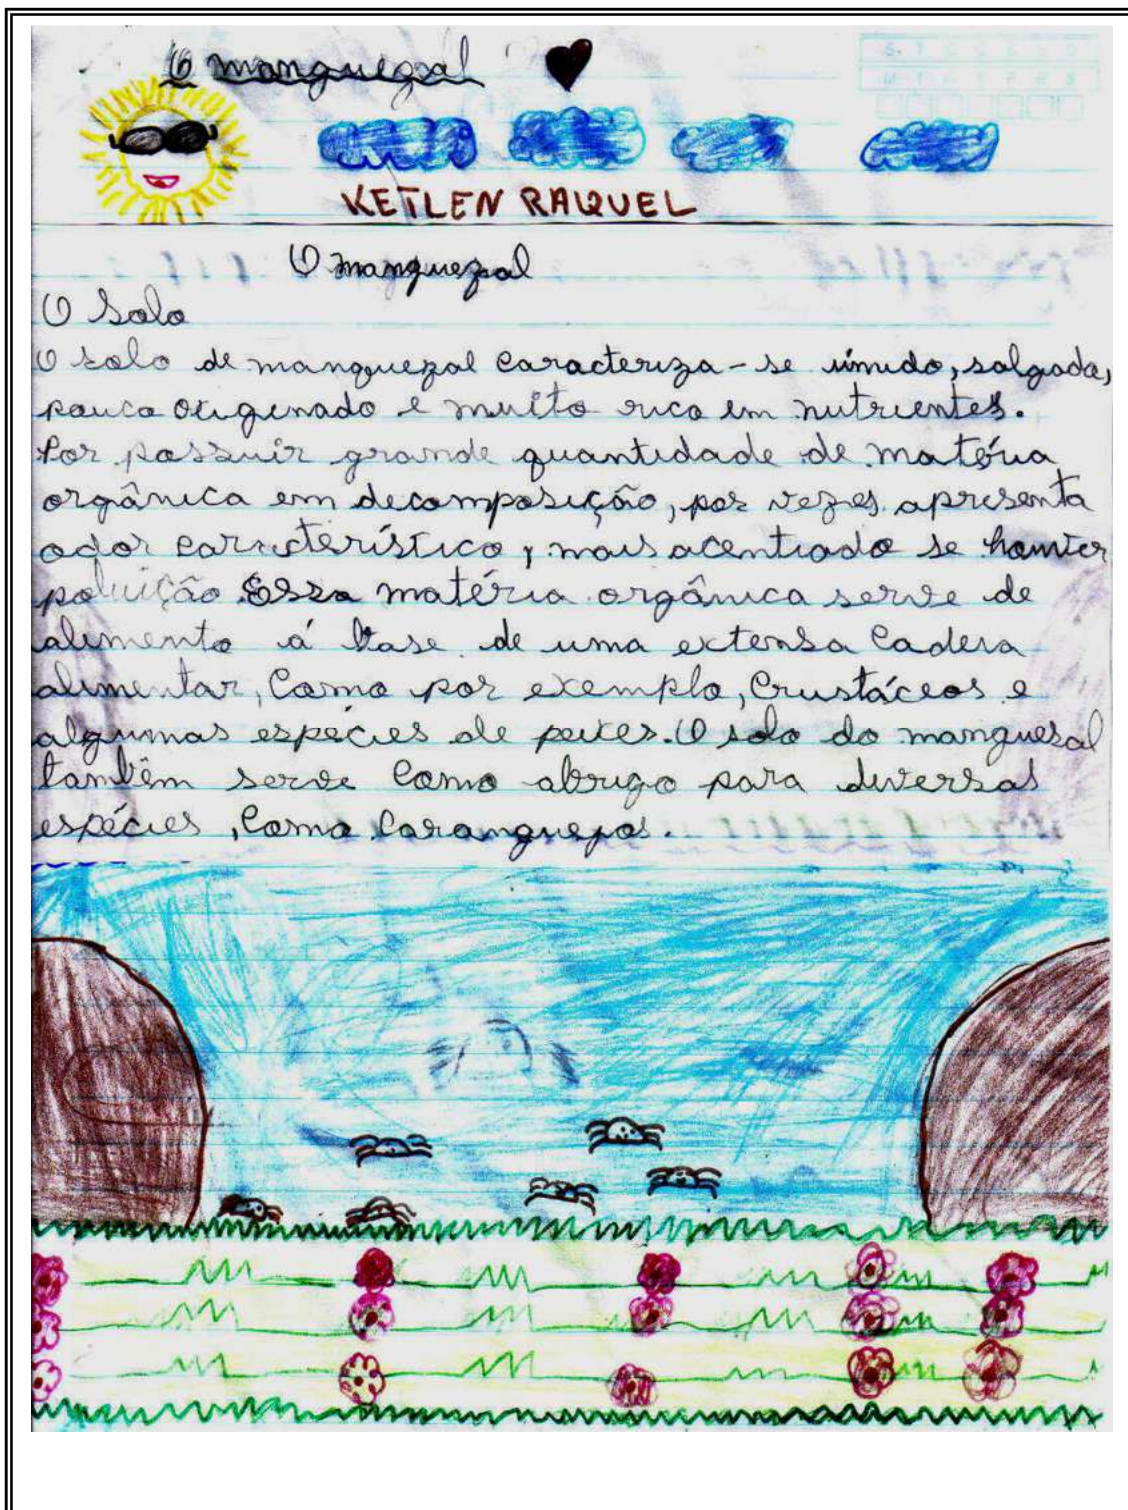 O manguezal
KETLEN RAQUEL
O manguezal
O Solo
O solo de manguezal caracteriza-se úmido, salgado,
pouco oxigenado e muito rico em nutrientes.
Por possuir grande quantidade de matéria
orgânica em decomposição, por vezes apresenta
odor característico, mais acentuado se houver
poluição Essa matéria orgânica serve de
alimento á base de uma extensa cadeia
alimentar, como por exemplo, crustáceos e
algumas espécies de peixes. O solo do manguesal
também serve como abrigo para diversas
espécies, como caranguejos.